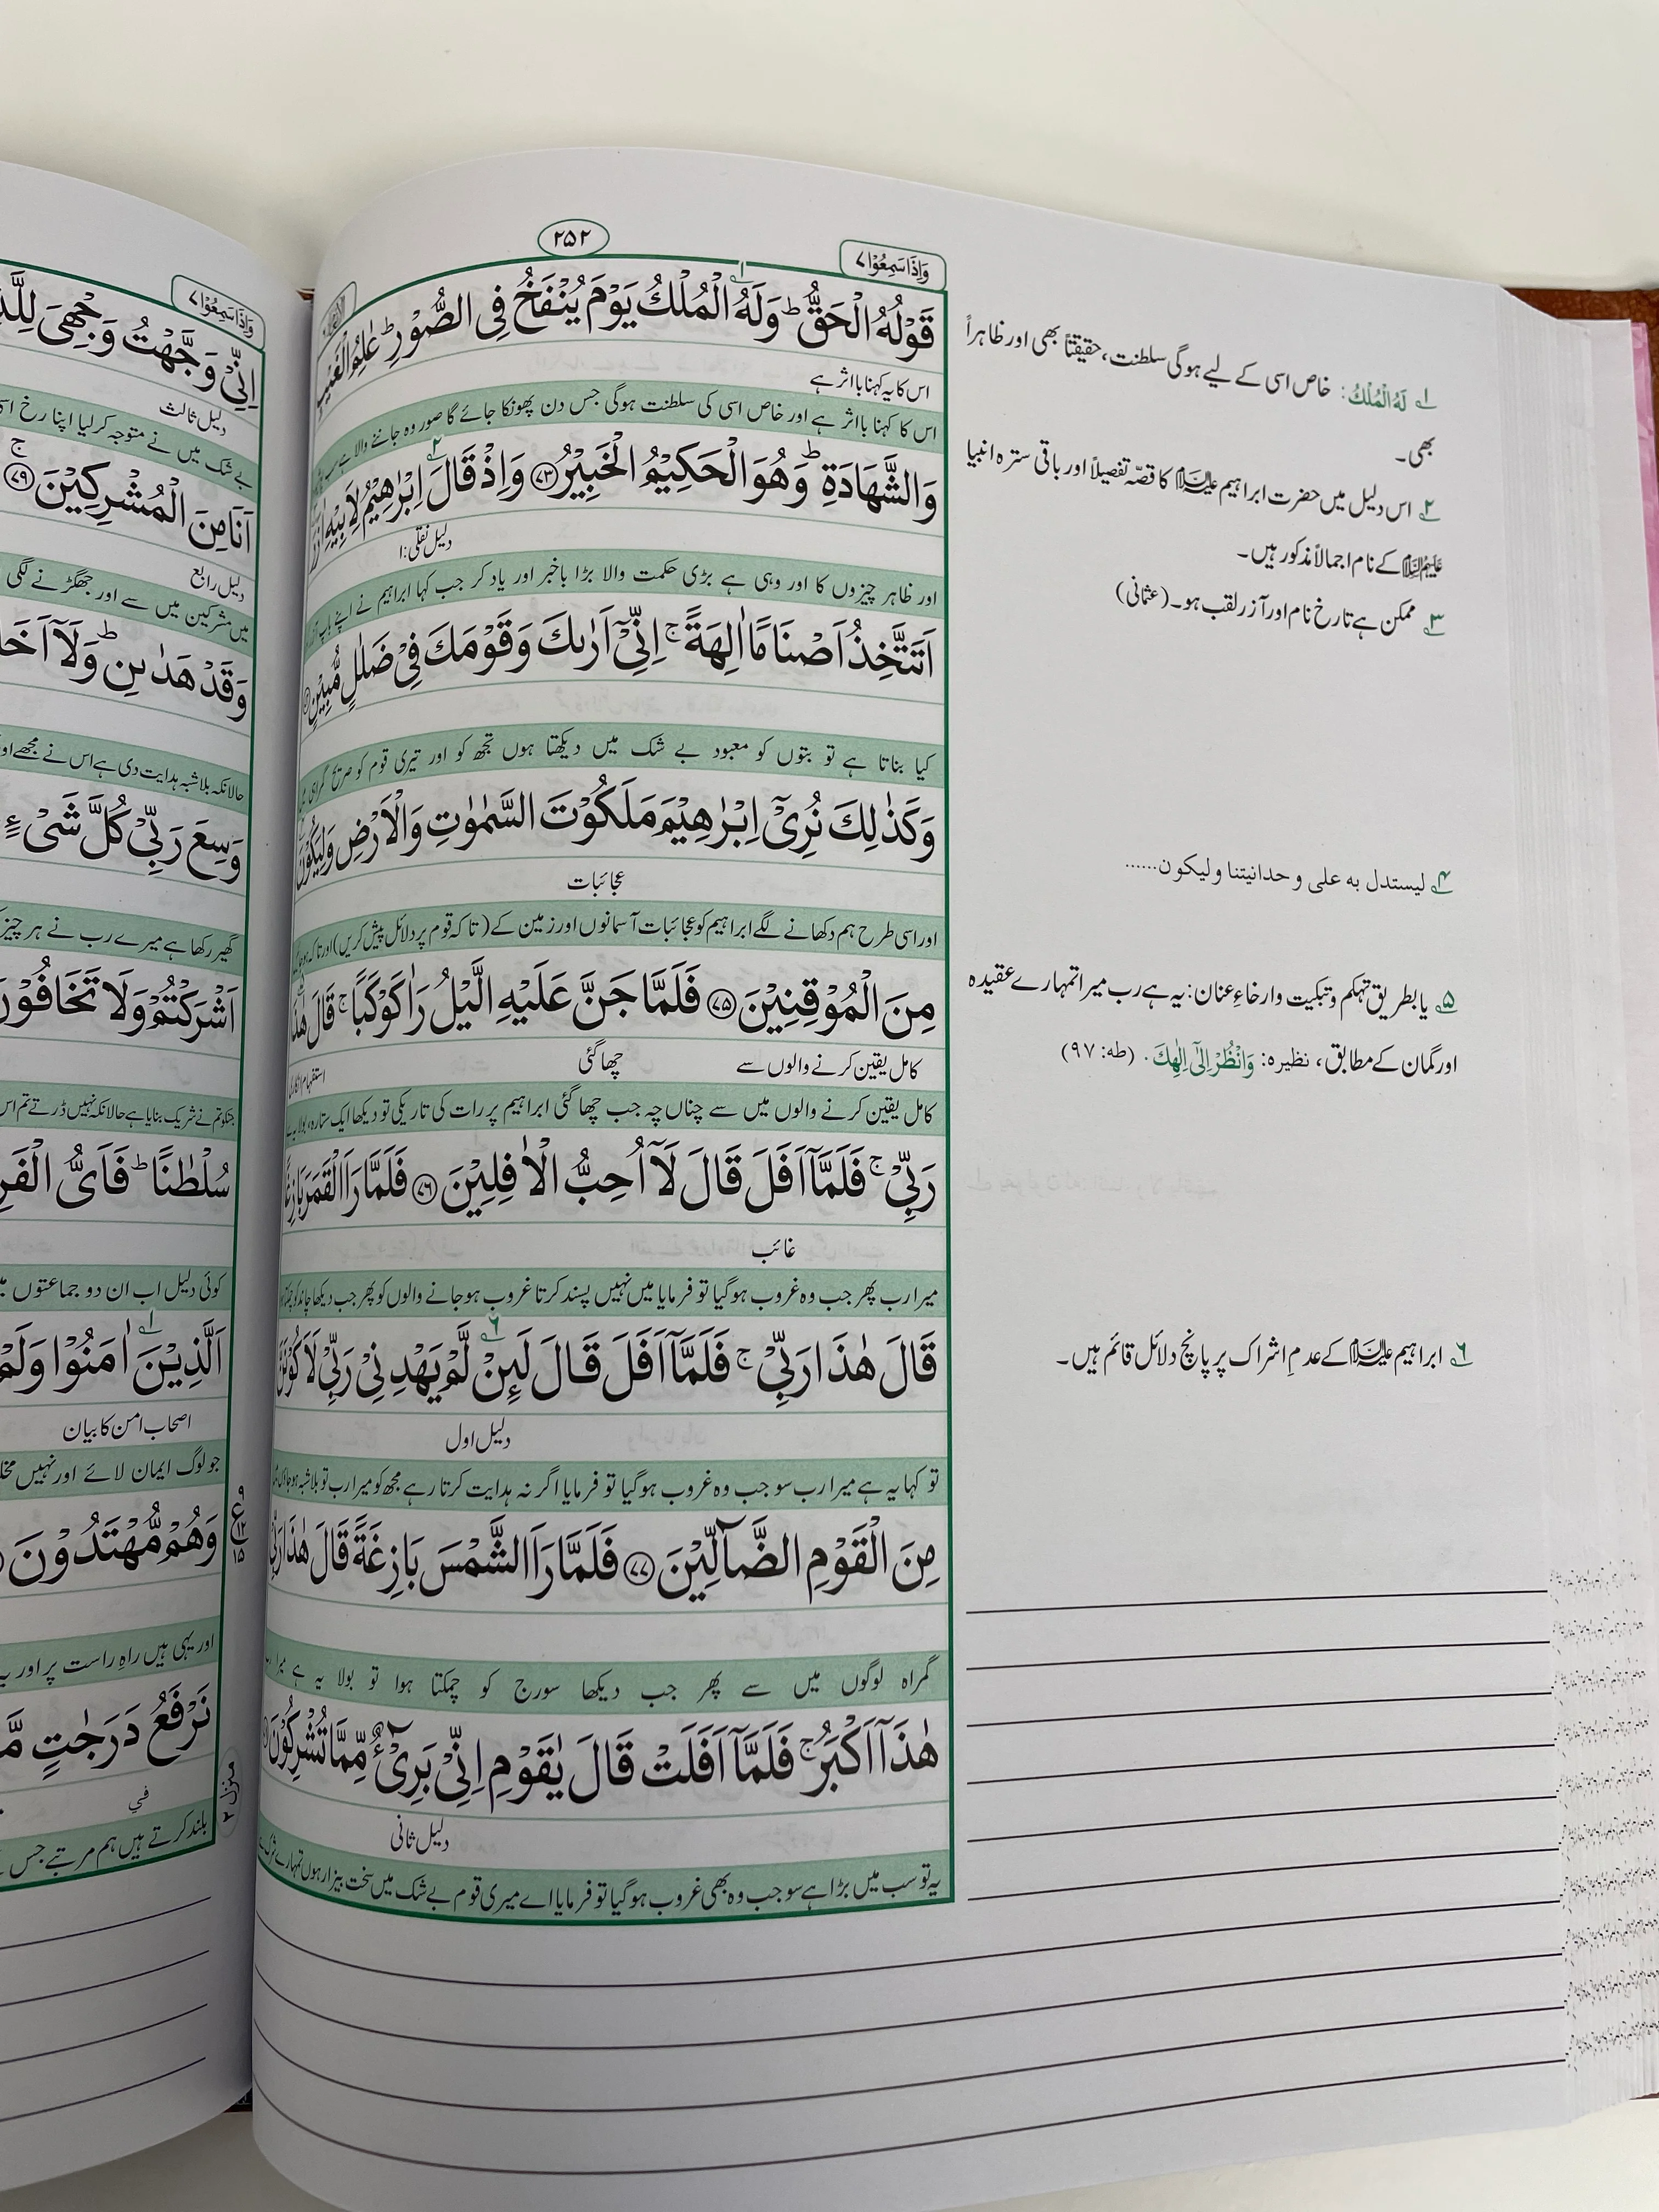 ۲۵۲
وَاِذَا سَمِعُوْا ۷
قَوْلُهُ الْحَقُّ ؕ وَلَهُ الْمُلْكُ يَوْمَ يُنْفَخُ فِى الصُّوْرِ ؕ عٰلِمُ الْغَيْبِ
اس کا یہ کہنا بااثر ہے
اس کا کہنا بااثر ہے اور خاص اسی کی سلطنت ہوگی جس دن پھونکا جائے گا صور وہ جاننے والا ہے
وَالشَّهَادَةِ ؕ وَهُوَ الْحَكِيْمُ الْخَبِيْرُ ۷۳ وَاِذْ قَالَ اِبْرٰهِيْمُ لِاَبِيْهِ اٰزَرَ
دلیل نقلی:۱
اور ظاہر چیزوں کا اور وہی ہے بڑی حکمت والا بڑا باخبر اور یاد کر جب کہا ابراہیم نے اپنے باپ
اَتَتَّخِذُ اَصْنَامًا اٰلِهَةً ۚ اِنِّىْٓ اَرٰىكَ وَقَوْمَكَ فِىْ ضَلٰلٍ مُّبِيْنٍ
کیا بناتا ہے تو بتوں کو معبود بے شک میں دیکھتا ہوں تجھ کو اور تیری قوم کو صریح گمراہی
وَكَذٰلِكَ نُرِىْٓ اِبْرٰهِيْمَ مَلَكُوْتَ السَّمٰوٰتِ وَالْاَرْضِ وَلِيَكُوْنَ
عجائبات
اور اسی طرح ہم دکھانے لگے ابراہیم کو عجائبات آسمانوں اور زمین کے (تاکہ قوم پر دلائل پیش کریں) اور تاکہ
مِنَ الْمُوْقِنِيْنَ ۷۵ فَلَمَّا جَنَّ عَلَيْهِ الَّيْلُ رَاٰ كَوْكَبًا ۚ قَالَ هٰذَا
کامل یقین کرنے والوں سے چھا گئی استفہام انکاری
کامل یقین کرنے والوں میں سے چناں چہ جب چھا گئی ابراہیم پر رات کی تاریکی تو دیکھا ایک ستارہ، بولا
رَبِّىْ ۚ فَلَمَّآ اَفَلَ قَالَ لَآ اُحِبُّ الْاٰفِلِيْنَ ۷۶ فَلَمَّا رَاَ الْقَمَرَ بَازِغًا
غائب
میرا رب پھر جب وہ غروب ہوگیا تو فرمایا میں نہیں پسند کرتا غروب ہو جانے والوں کو پھر جب دیکھا چاند کو
قَالَ هٰذَا رَبِّىْ ۚ فَلَمَّآ اَفَلَ قَالَ لَئِنْ لَّمْ يَهْدِنِىْ رَبِّىْ لَاَكُوْنَنَّ
دلیل اول
تو کہا یہ ہے میرا رب سو جب وہ غروب ہوگیا تو فرمایا اگر نہ ہدایت کرتا رہے مجھ کو میرا رب تو بلاشبہ
مِنَ الْقَوْمِ الضَّآلِّيْنَ ۷۷ فَلَمَّا رَاَ الشَّمْسَ بَازِغَةً قَالَ هٰذَا رَبِّىْ
گمراہ لوگوں میں سے پھر جب دیکھا سورج کو چمکتا ہوا تو بولا یہ ہے
هٰذَآ اَكْبَرُ ۚ فَلَمَّآ اَفَلَتْ قَالَ يٰقَوْمِ اِنِّىْ بَرِىْٓءٌ مِّمَّا تُشْرِكُوْنَ
دلیل ثانی
یہ تو سب میں بڑا ہے سو جب وہ بھی غروب ہوگیا تو فرمایا اے میری قوم بے شک میں سخت بیزار ہوں
۱ لَهُ الْمُلْكُ: خاص اسی کے لیے ہوگی سلطنت، حقیقتاً بھی اور ظاہراً
بھی۔
۲ اس دلیل میں حضرت ابراہیم علیہ السلام کا قصہ تفصیلاً اور باقی سترہ انبیا
علیہم السلام کے نام اجمالاً مذکور ہیں۔
۳ ممکن ہے تارخ نام اور آزر لقب ہو۔ (عثمانی)
۴ لیستدل به علی وحدانیتنا ولیکون......
۵ یا بطریق تہکم و تبکیت وارخاءِ عنان: یہ ہے رب میرا تمہارے عقیدہ
اور گمان کے مطابق، نظیرہ: وَانْظُرْ اِلٰٓى اِلٰهِكَ. (طه: ۹۷)
۶ ابراہیم علیہ السلام کے عدمِ اشراک پر پانچ دلائل قائم ہیں۔
وَاِذَا سَمِعُوْا ۷
اِنِّىْ وَجَّهْتُ وَجْهِىَ
دلیل ثالث
بے شک میں نے متوجہ کرلیا اپنا رخ
اَنَا مِنَ الْمُشْرِكِيْنَ ۷۹
دلیل رابع
میں مشرکین میں سے اور جھگڑنے لگی
وَقَدْ هَدٰىنِ ؕ وَلَآ
حالانکہ بلاشبہ ہدایت دی ہے اس نے مجھے
وَسِعَ رَبِّىْ كُلَّ شَىْءٍ
گھیر رکھا ہے میرے رب نے ہر چیز
اَشْرَكْتُمْ وَلَا تَخَافُوْنَ
جنکو تم نے شریک بنایا ہے حالانکہ نہیں ڈرتے تم
سُلْطٰنًا ؕ فَاَىُّ
کوئی دلیل اب ان دو جماعتوں
اَلَّذِيْنَ اٰمَنُوْا وَلَمْ
اصحاب امن کا بیان
جو لوگ ایمان لائے اور نہیں
وَهُمْ مُّهْتَدُوْنَ
اور یہی ہیں راہِ راست پر اور
نَرْفَعُ دَرَجٰتٍ
في
بلند کرتے ہیں ہم مرتبے جس
۹
ع
۱۲
۱۵
منزل ۲